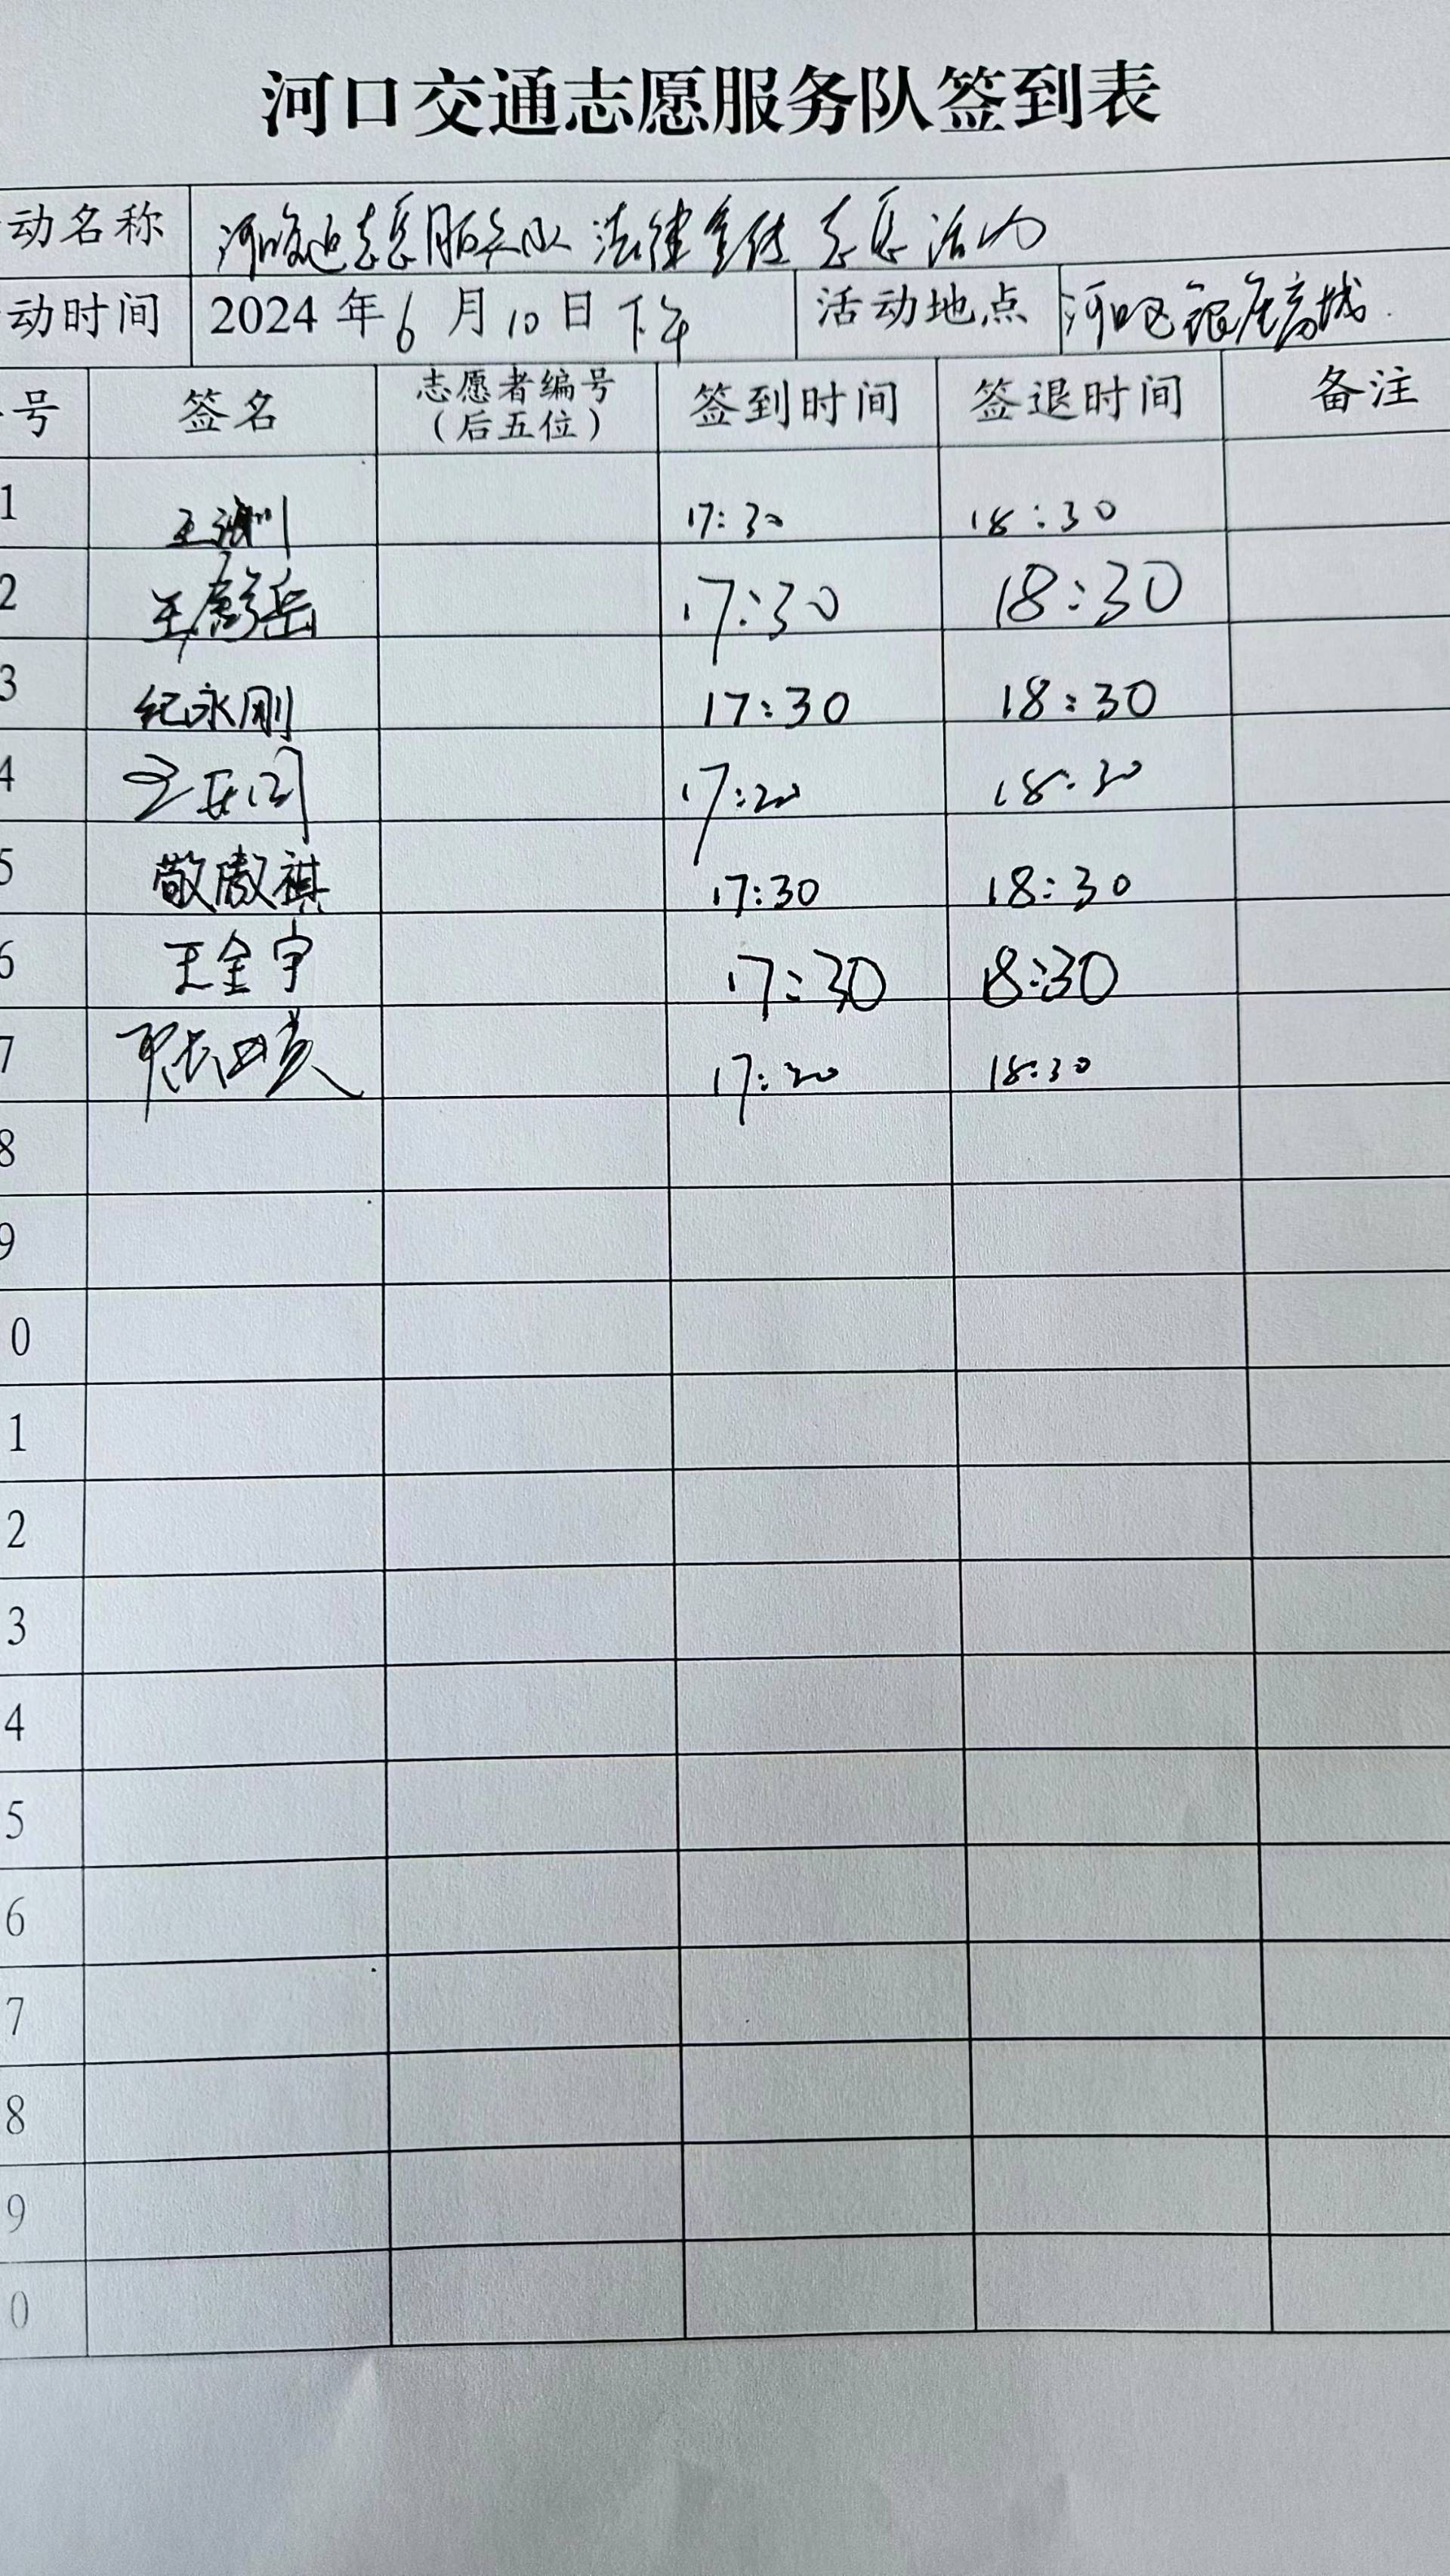 河口交通志愿服务队签到表
动名称 河口交通志愿服务队 法律宣传 志愿活动
动时间 2024年6月10日下午 活动地点 河口区银座商城.
号 签名 志愿者编号（后五位） 签到时间 签退时间 备注
1 王 17:30 18:30
2 王彦岳 17:30 18:30
3 纪永刚 17:30 18:30
4 17:20 18:30
5 敬傲祺 17:30 18:30
6 王金宇 17:30 18:30
7 17:20 18:30
8
9
0
1
2
3
4
5
6
7
8
9
0